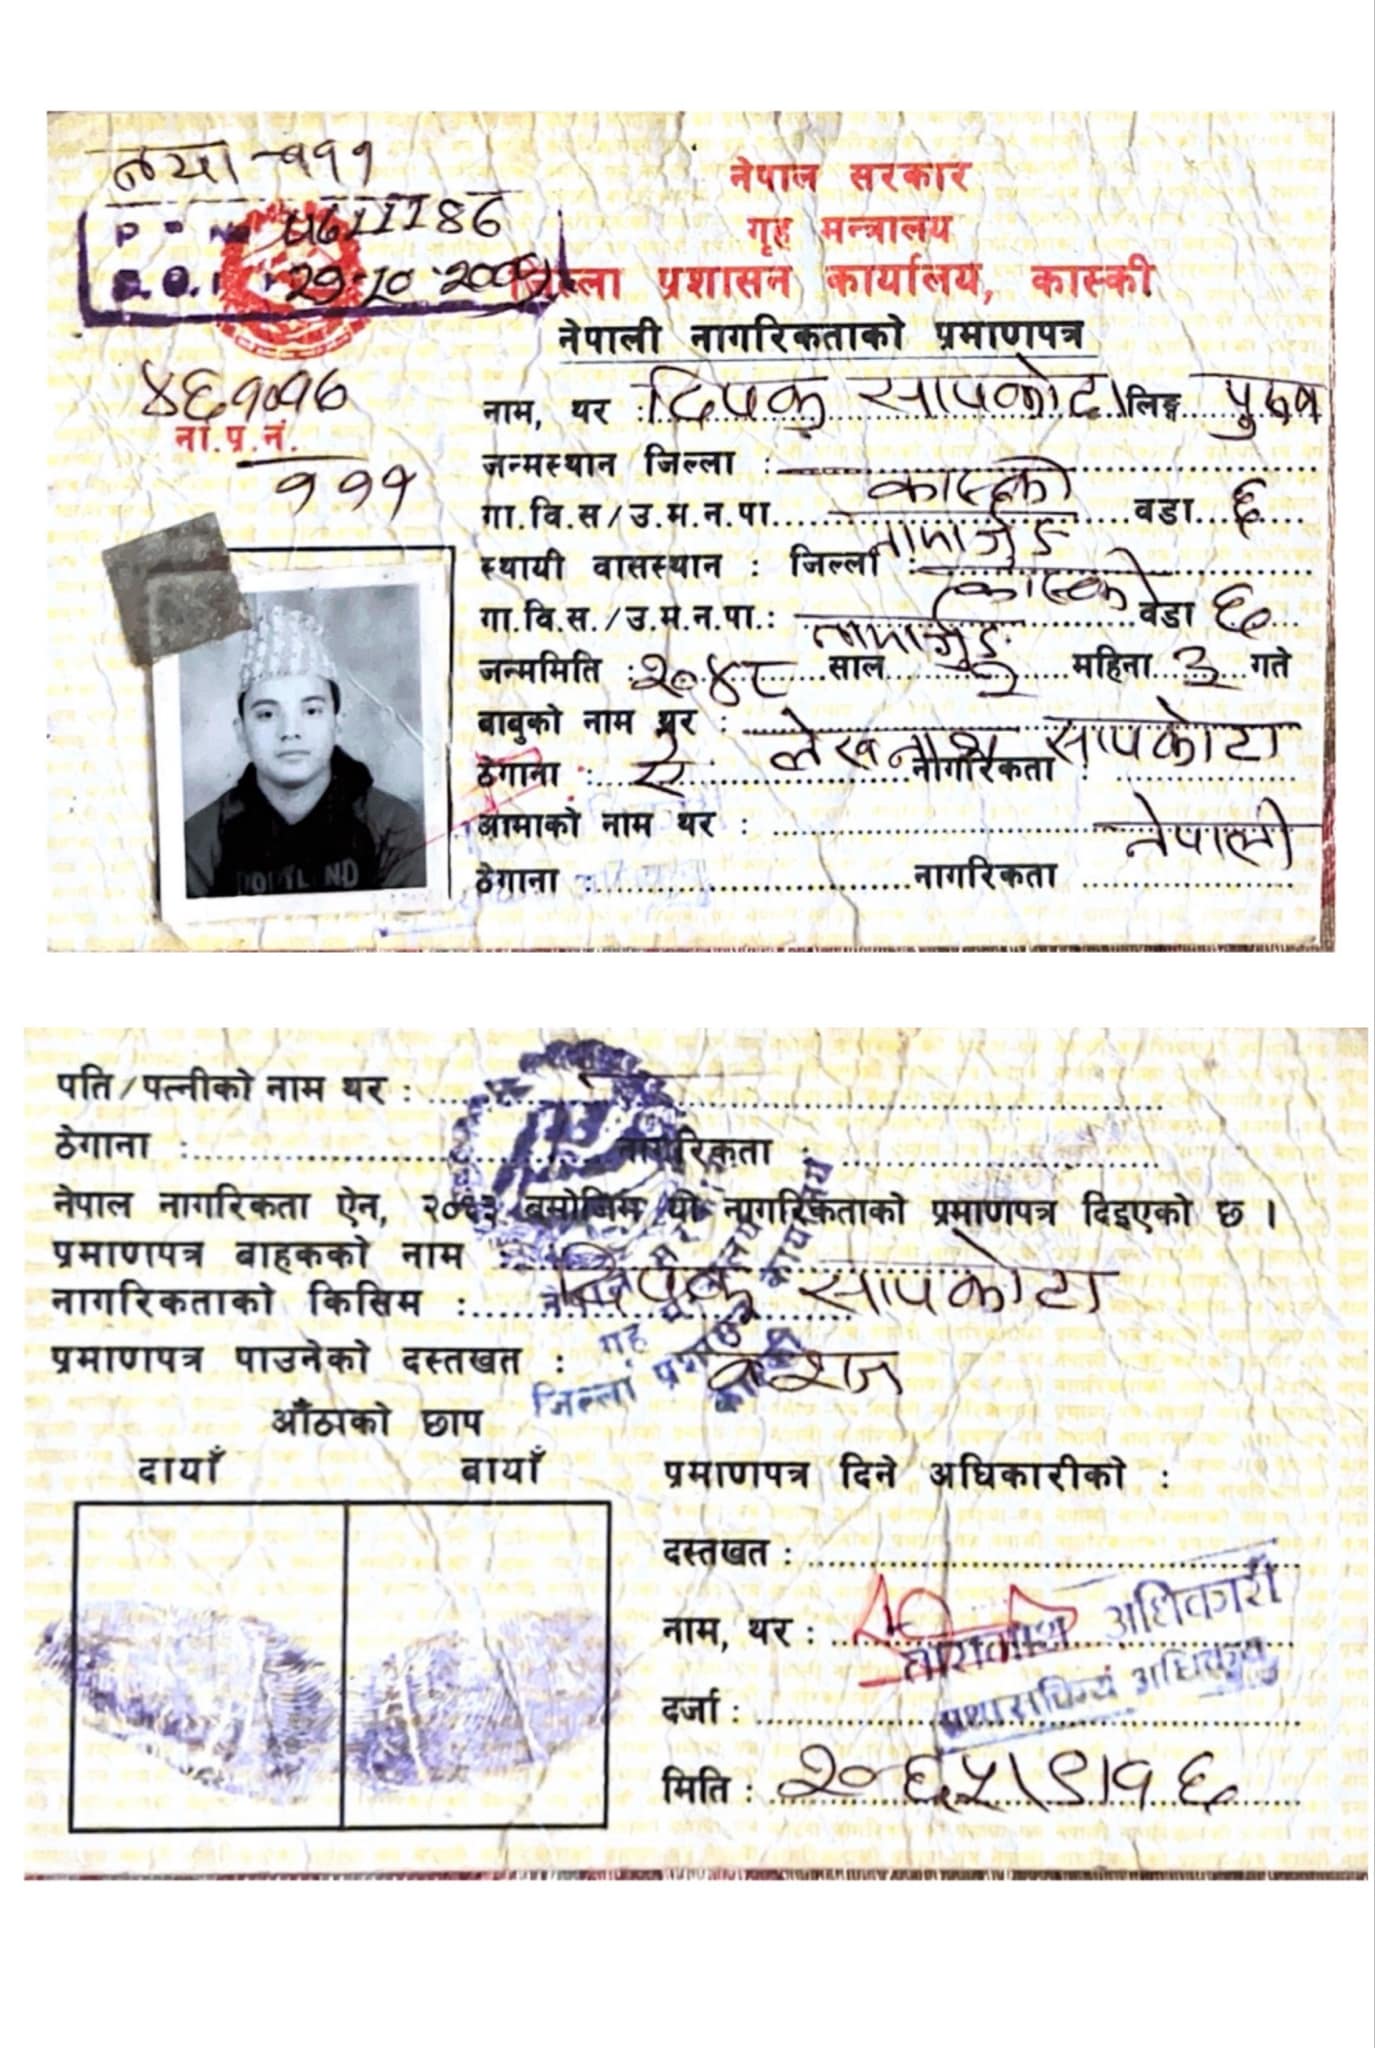 नेपाल सरकार
गृह मन्त्रालय
जिल्ला प्रशासन कार्यालय, कास्की
नेपाली नागरिकताको प्रमाणपत्र
29-10-200
ना.प्र.नं.
१११
नाम, थर : दिपक सापकोटा लिङ्ग पुरुष
जन्मस्थान जिल्ला : कास्की
गा.वि.स/उ.म.न.पा. वडा ६
स्थायी वासस्थान : जिल्ला : कास्की
गा.वि.स./उ.म.न.पा.: वडा ६
जन्ममिति : २०४८ साल महिना ३ गते
बाबुको नाम थर : लेखनाथ सापकोटा
ठेगाना : ऐ नागरिकता : नेपाली
आमाको नाम थर :
ठेगाना : नागरिकता
पति/पत्नीको नाम थर :
ठेगाना : नागरिकता :
नेपाल नागरिकता ऐन, २०६३ बमोजिम यो नागरिकताको प्रमाणपत्र दिइएको छ ।
प्रमाणपत्र बाहकको नाम : दिपक सापकोटा
नागरिकताको किसिम : वंशज
प्रमाणपत्र पाउनेको दस्तखत :
औंठाको छाप
दायाँ बायाँ
प्रमाणपत्र दिने अधिकारीको :
दस्तखत :
नाम, थर : अधिकारी
दर्जा :
मिति : २०६५।९।१६